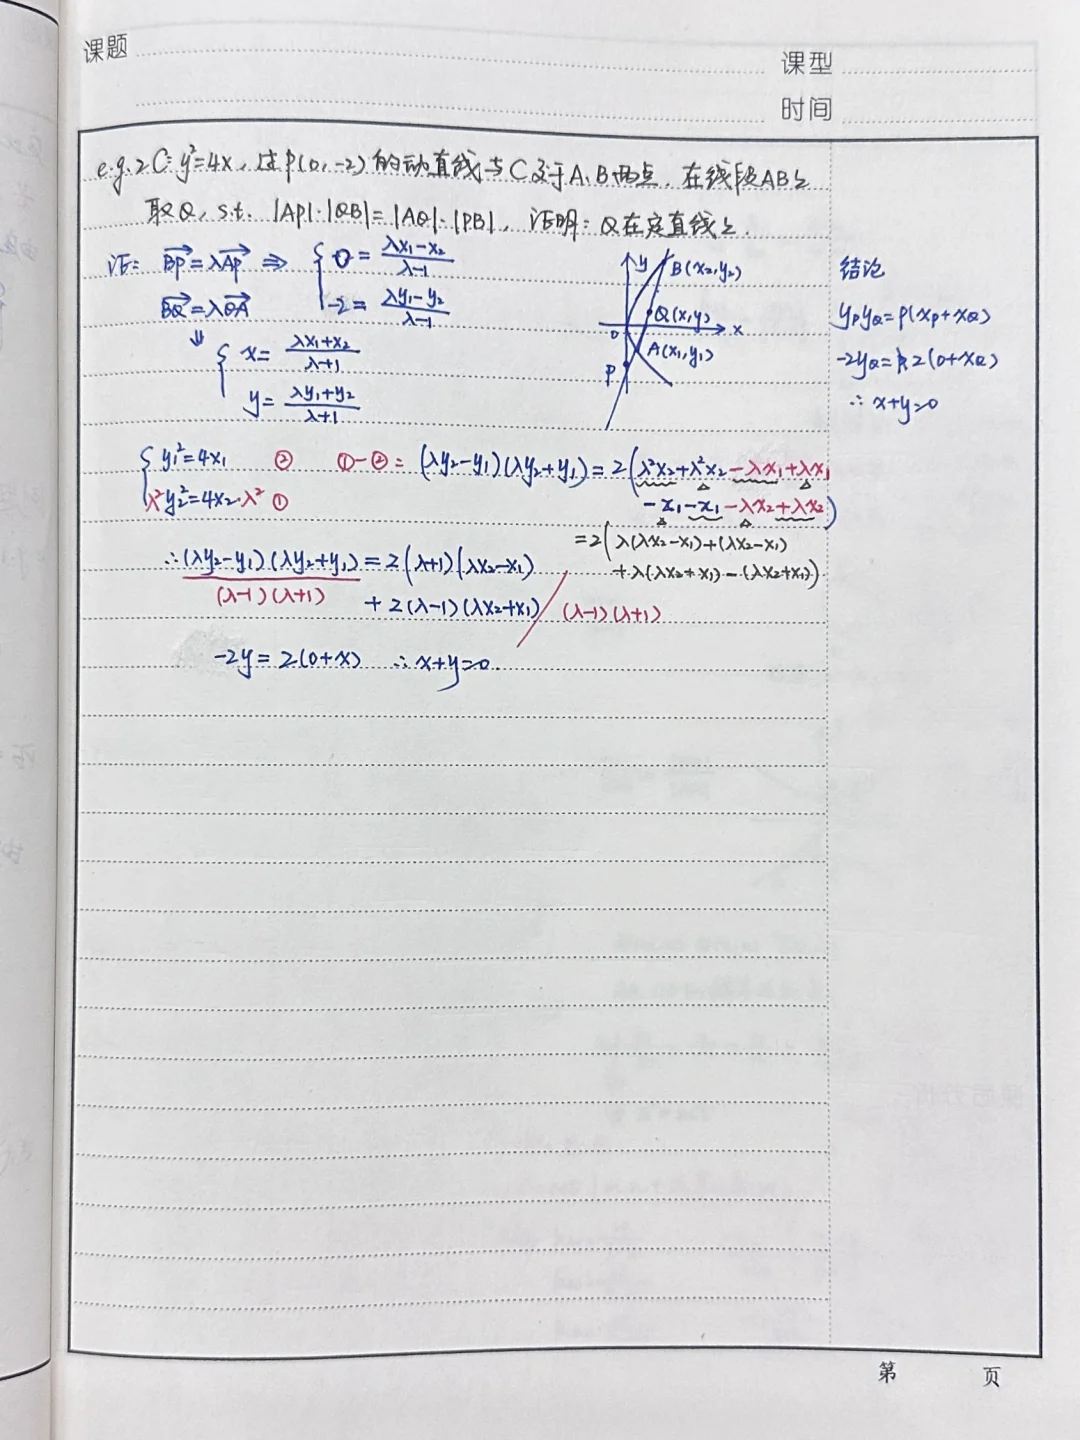 课题
课型
时间
e.g.2 C: y²=4x, 过P(0,-2)的动直线与C交于A、B两点, 在线段AB上
取Q, s.t. |AP|·|QB|=|AQ|·|PB|, 证明: Q在定直线上.
证: \overrightarrow{BP}=λ\overrightarrow{AP} ⇒ { 0=\frac{λx₁-x₂}{λ-1}
\overrightarrow{BQ}=λ\overrightarrow{QA} -2=\frac{λy₁-y₂}{λ-1}
⇓ { x=\frac{λx₁+x₂}{λ+1}
y=\frac{λy₁+y₂}{λ+1}
y
B(x₂,y₂)
Q(x,y)
x
0
A(x₁,y₁)
P
结论
y_P y_Q=P(x_P+x_Q)
-2y_Q=2(0+x_Q)
∴ x+y=0
{ y₁²=4x₁ ② ①-②= (λy₂-y₁)(λy₂+y₁)=2(λ²x₂+λ²x₂-λx₁+λx₁
λ²y₂²=4x₂·λ² ① -x₁-x₁-λx₂+λx₂)
=2(λ(λx₂-x₁)+(λx₂-x₁)
+λ(λx₂+x₁)-(λx₂+x₁))
∴ (λy₂-y₁)(λy₂+y₁)=2(λ+1)(λx₂-x₁)
(λ-1)(λ+1) +2(λ-1)(λx₂+x₁) / (λ-1)(λ+1)
-2y=2(0+x) ∴ x+y=0.
第 页